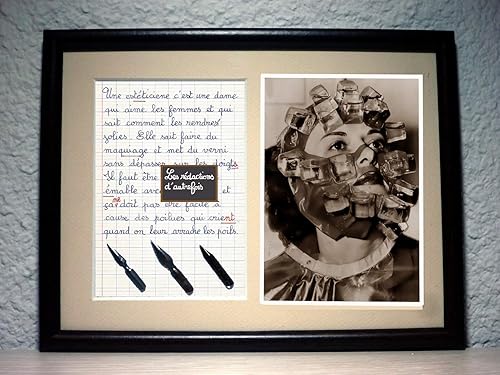 Une estéticiene c'est une dame
qui aime les femmes et qui
sait comment les rendres
jolies. Elle sait faire du
maquiage et met du verni
sans dépasser sur les doigts
Il faut être
émable avec et
ça doit pas etre facile à
cause des poilues qui crient
quand on leur arrache les poils.
Les rédactions
d'autrefois